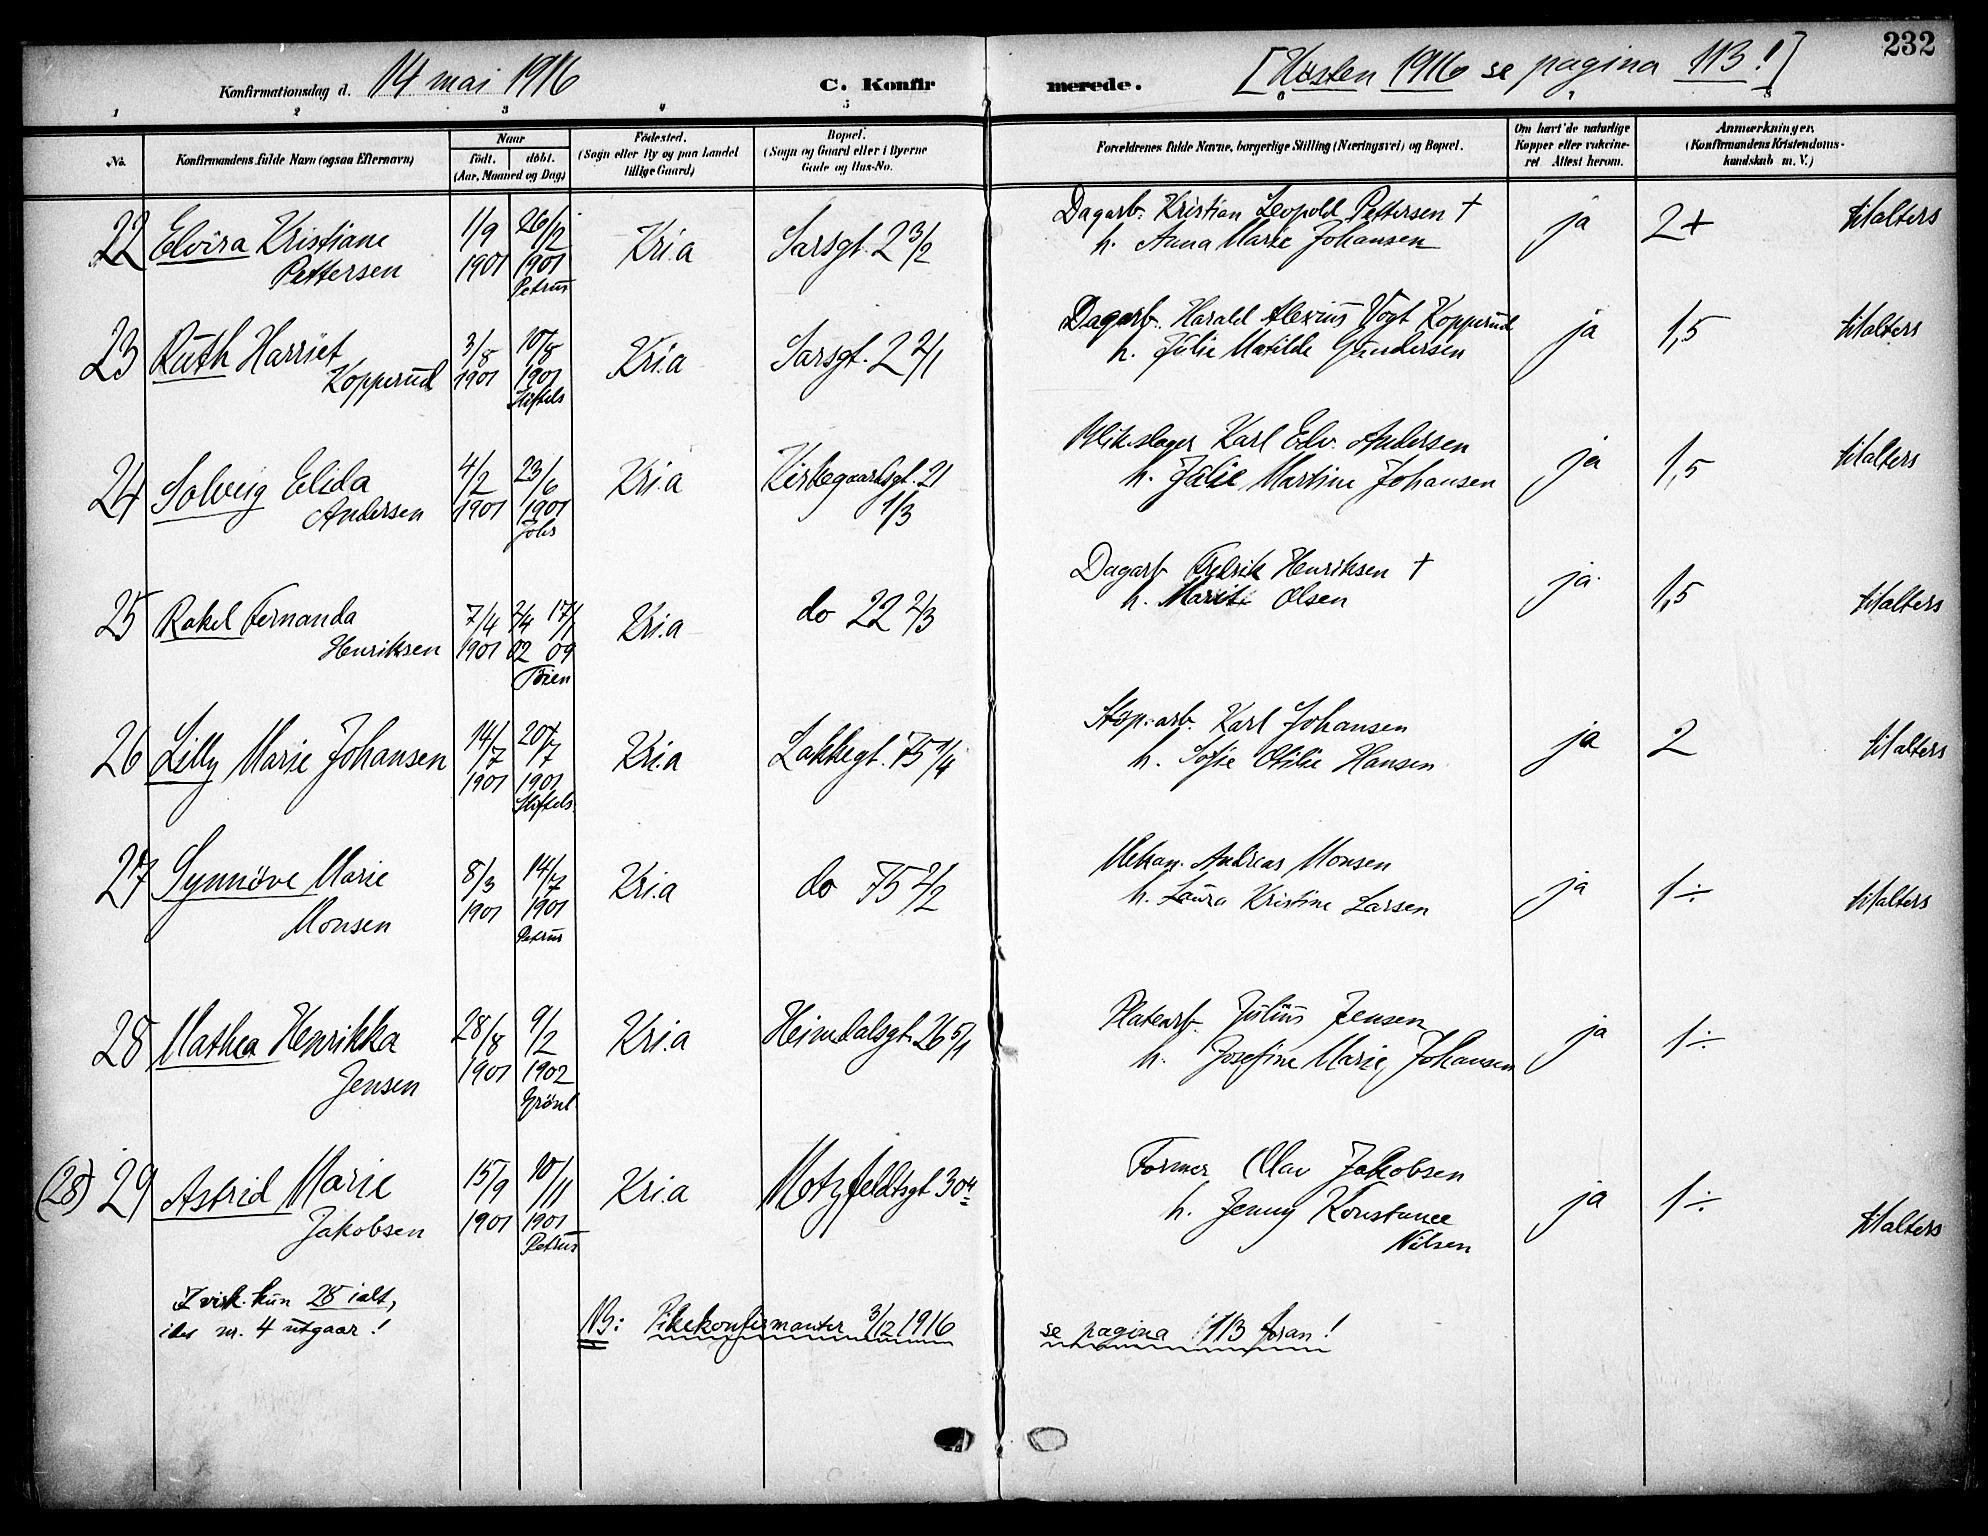 232
Konfirmationsdag d. 14 mai 1916 C. Konfirmerede. [Høsten 1916 se pagina 113!]
1 2 3 4 5 6 7 8
No. Konfirmandens fulde Navn (ogsaa Efternavn) Naar født. døbt. (Aar, Maaned og Dag) Fødested. (Sogn eller By og paa Landet tillige Gaard) Bopæl. (Sogn og Gaard eller i Byerne Gade og Hus-No.
Forældrenes fulde Navne, borgerlige Stilling (Næringsvei) og Bopæl. Om havt de naturlige Kopper eller vakcineret Attest herom. Anmærkninger. (Konfirmandens Kristendomskundskab m. V.)
22 Elvira Kristiane 1/9 26/12 Kri.a Sarsgt. 2 3/2 Dagarb. Kristian Leopold Pettersen + ja 2+
Pettersen 1901 1901 h. Anna Marie Johansen
Petrus
23 Ruth Harriet 3/8 10/8 Kri.a Sarsgt. 2 2/1 Dagarb. Harald Alexius Vogt Kopperud ja 1,5
Kopperud 1901 1901 h. Julie Matilde Gundersen
Stiftels
24 Solveig Elida 4/2 23/6 Kri.a Kirkegaardsgt. 21 Blikslager Karl Edv. Andersen ja 1,5
Andersen 1901 1901 1/3 h. Julie Martine Johansen
Johs
25 Rakel Fernanda 7/4 2/4 17/1 Kri.a do 22 2/3 Dagarb Fredrik Henriksen + ja 1,5
Henriksen 1901 02 09 h. Marit Olsen
Tøien
26 Lilly Marie Johansen 14/7 20/7 Kri.a Lakkegt. 75 1/4 Støp.arb. Karl Johansen ja 2
1901 1901 h. Sofie Otilie Hansen
Stiftels
27 Synnöve Marie 8/3 14/7 Kri.a do 75 2/2 Mekan. Andreas Monsen ja 1÷
Monsen 1901 1901 h. Laura Kristine Larsen
Petrus
28 Mathea Henrikka 28/8 9/2 Kri.a Heimdalsgt. 26 5/1 Platearb. Julius Jensen ja 1÷
Jensen 1901 1902 h. Josefine Marie Johansen
Grönl
(28) 29 Astrid Marie 15/9 10/11 Kri.a Motzfeldtsgt 30 Former Olav Jakobsen ja 1÷
Jakobsen 1901 1901 h. Jenny Konstance
Petrus Nilsen
I virk. kun 28 ialt,
ides nr. 4 utgaar!
NB: Pikekonfirmanter 3/12 1916 se pagina 113 foran!